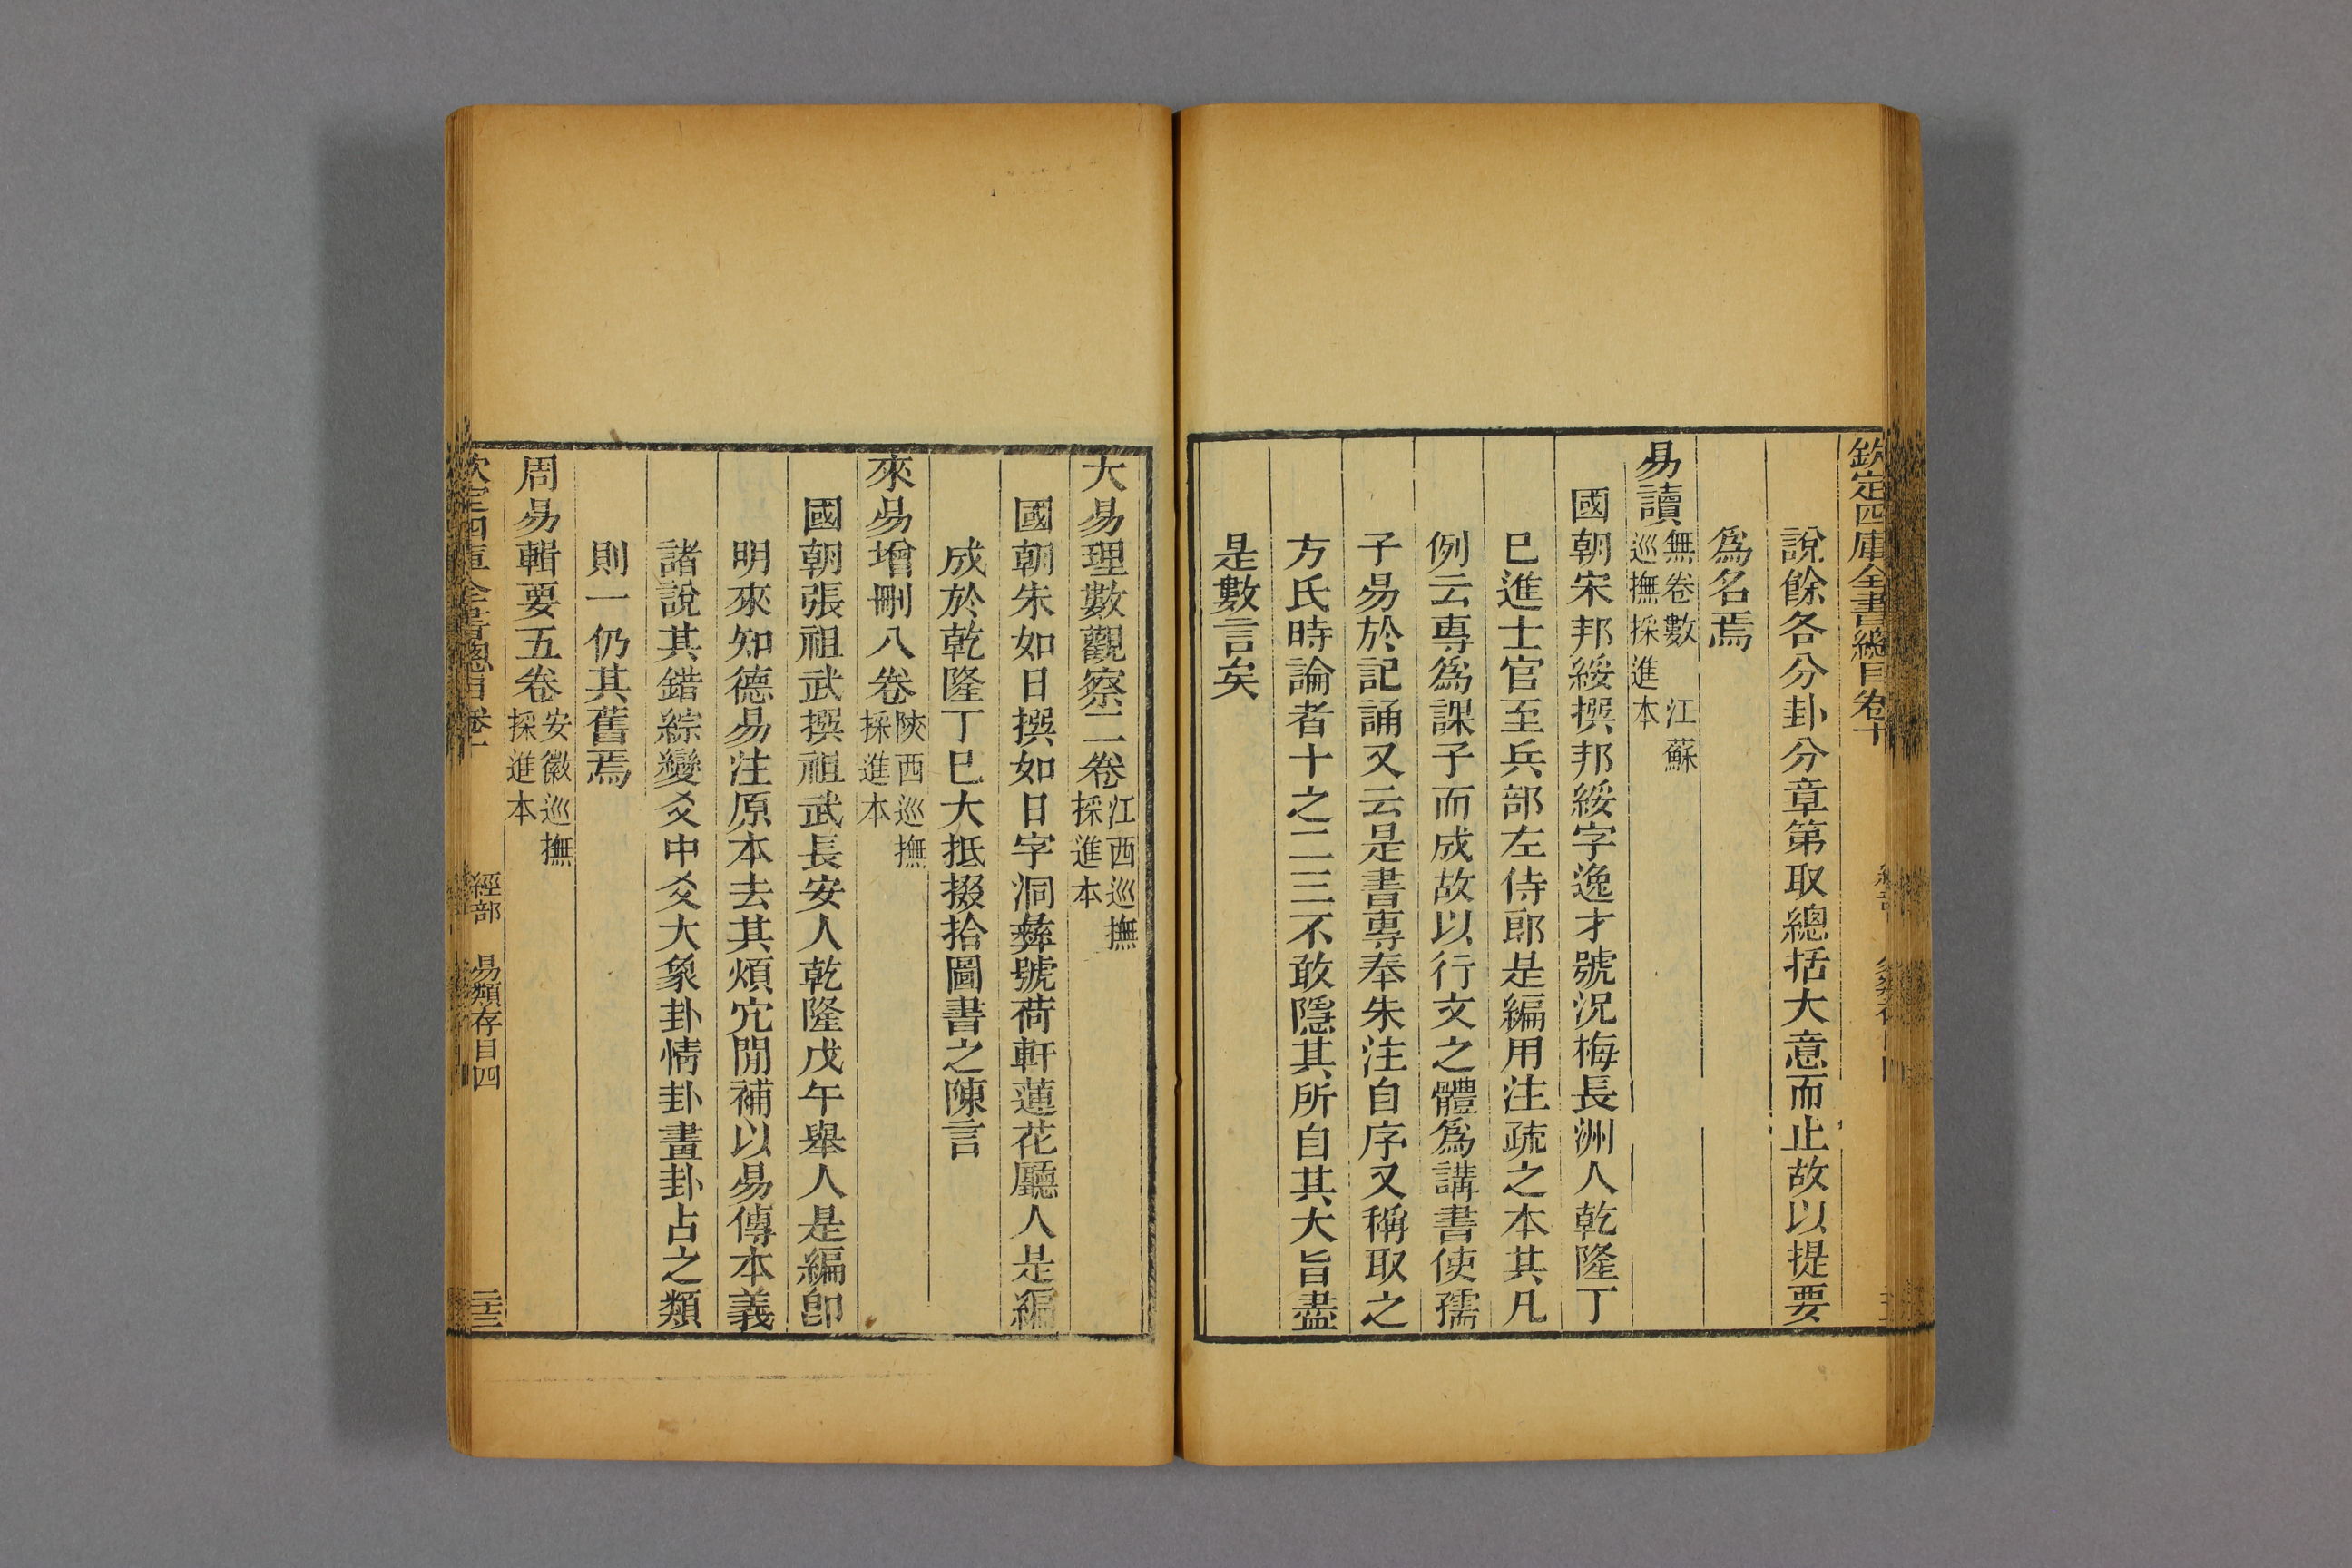 欽定四庫全書總目卷十
說餘各分卦分章第取總括大意而止故以提要
爲名焉
易讀無卷數 江蘇巡撫採進本
國朝宋邦綏撰邦綏字逸才號況梅長洲人乾隆丁
巳進士官至兵部左侍郎是編用注疏之本其凡
例云專爲課子而成故以行文之體爲講書使孺
子易於記誦又云是書專奉朱注自序又稱取之
方氏時論者十之二三不敢隱其所自其大旨盡
是數言矣
大易理數觀察二卷江西巡撫採進本
國朝朱如日撰如日字洞彝號荷軒蓮花廳人是編
成於乾隆丁巳大抵掇拾圖書之陳言
來易增刪八卷陝西巡撫採進本
國朝張祖武撰祖武長安人乾隆戊午舉人是編卽
明來知德易注原本去其煩宂閒補以易傳本義
諸說其錯綜變爻中爻大象卦情卦畫卦占之類
則一仍其舊焉
周易輯要五卷安徽巡撫採進本
欽定四庫全書總目卷十 經部 易類存目四 二十三